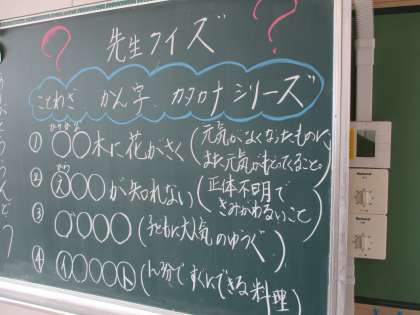 ? ?
先生クイズ
ことわざ、かん字、カタカナシリーズ
① ○○木に花がさく(元気がなくなったものに、また元気がもどってくること。)
② え○○○が知れない(正体不明できみがわるいこと)
③ ブ○○○(子どもに大人気のゆうぐ)
④ イ○○○ト(1、2分ですぐにできる料理)